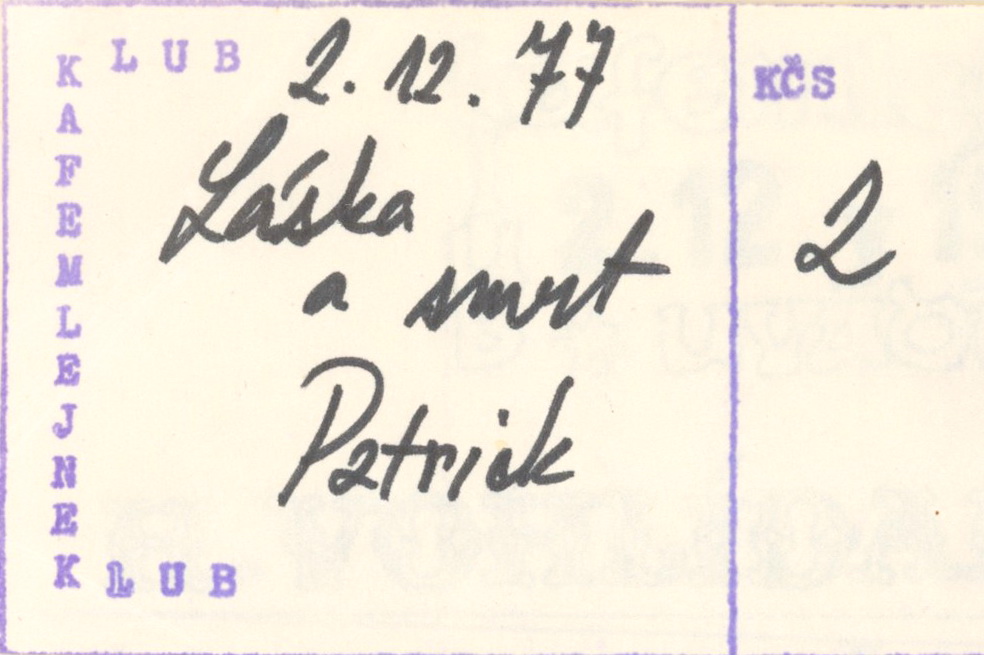 KLUB
2.12.77
KČS
KAFEMLEJNEK
Láska
2
a smrt
Patrick
KLUB